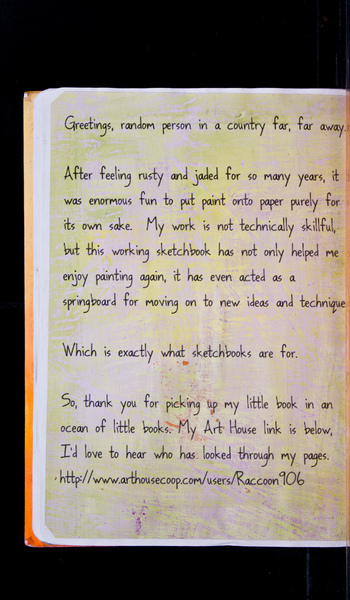 Greetings, random person in a country far, far away.
After feeling rusty and jaded for so many years, it
was enormous fun to put paint onto paper purely for
its own sake. My work is not technically skillful,
but this working sketchbook has not only helped me
enjoy painting again, it has even acted as a
springboard for moving on to new ideas and technique
Which is exactly what sketchbooks are for.
So, thank you for picking up my little book in an
ocean of little books. My Art House link is below,
I'd love to hear who has looked through my pages.
http://www.arthousecoop.com/users/Raccoon906